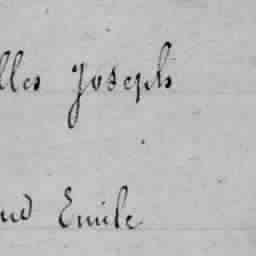 lles Joseph
ud Emile